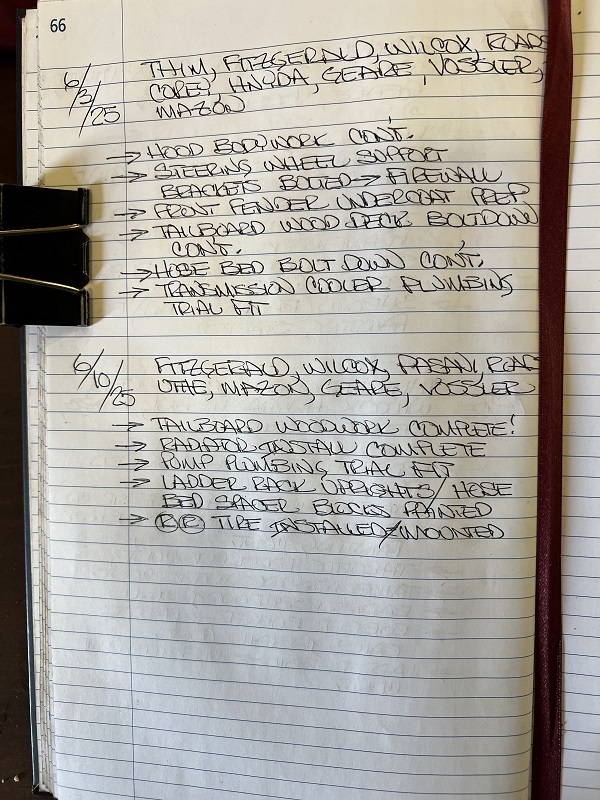 66
6/3/25
THIM, FITZGERALD, WILCOX, ROADS
COREY, HNYDA, GEARE, VOSSLER,
MAZON
→ HOOD BODYWORK CON'T.
→ STEERING WHEEL SUPPORT
BRACKETS BOLTED → FIREWALL
→ FRONT FENDER UNDERCOAT PREP
→ TAILBOARD WOOD DECK BOLTDOWN
CON'T.
→ HOSE BED BOLT DOWN CON'T.
→ TRANSMISSION COOLER PLUMBING
TRIAL FIT
6/10/25
FITZGERALD, WILCOX, PASANI, ROADS
UTHE, MAZON, GEARE, VOSSLER
→ TAILBOARD WOODWORK COMPLETE!
→ RADIATOR INSTALL COMPLETE
→ PUMP PLUMBING TRIAL FIT
→ LADDER RACK UPRIGHTS/HOSE
BED SPACER BLOCKS PAINTED
→ RR TIRE INSTALLED/MOUNTED